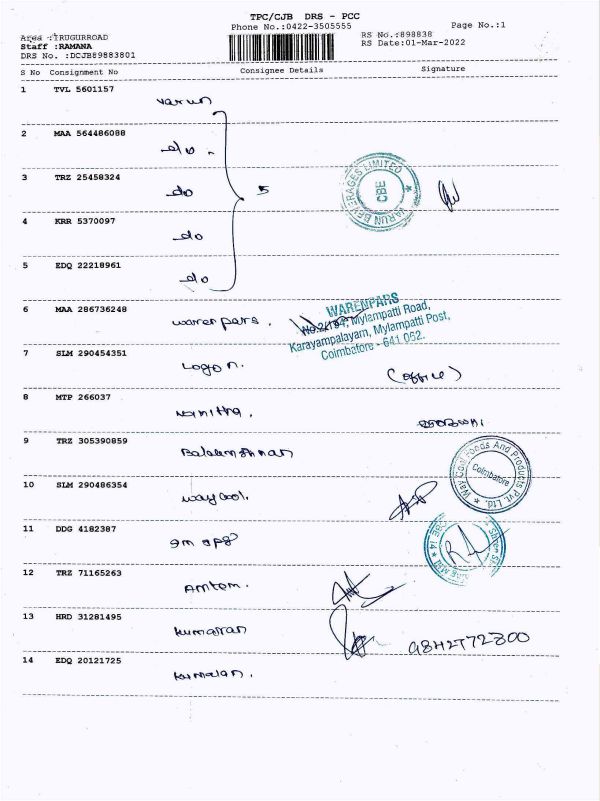 TPC/CJB DRS - PCC
Phone No.:0422-3505555
Page No.:1
Area :IRUGURROAD
Staff :RAMANA
DRS No. :DCJB89883801
RS No.:898838
RS Date:01-Mar-2022
S No Consignment No Consignee Details Signature
1 TVL 5601157 varun
2 MAA 564486088 do.
3 TRZ 25458324 do 5
VARUN BEVERAGES LIMITED CBE
4 KRR 5370097 do
5 EDQ 22218961 do
6 MAA 286736248 warenpars.
WARENPARS
Mylampatti Road,
Karayampalayam, Mylampatti Post,
Coimbatore - 641 062.
7 SLM 290454351 Logon. (office)
8 MTP 266037 vanitha.
9 TRZ 305390859
10 SLM 290486354 waycool.
WayCool Foods And Products Pvt. Ltd. Coimbatore
11 DDG 4182387
12 TRZ 71165263
13 HRD 31281495 kumaran
14 EDQ 20121725